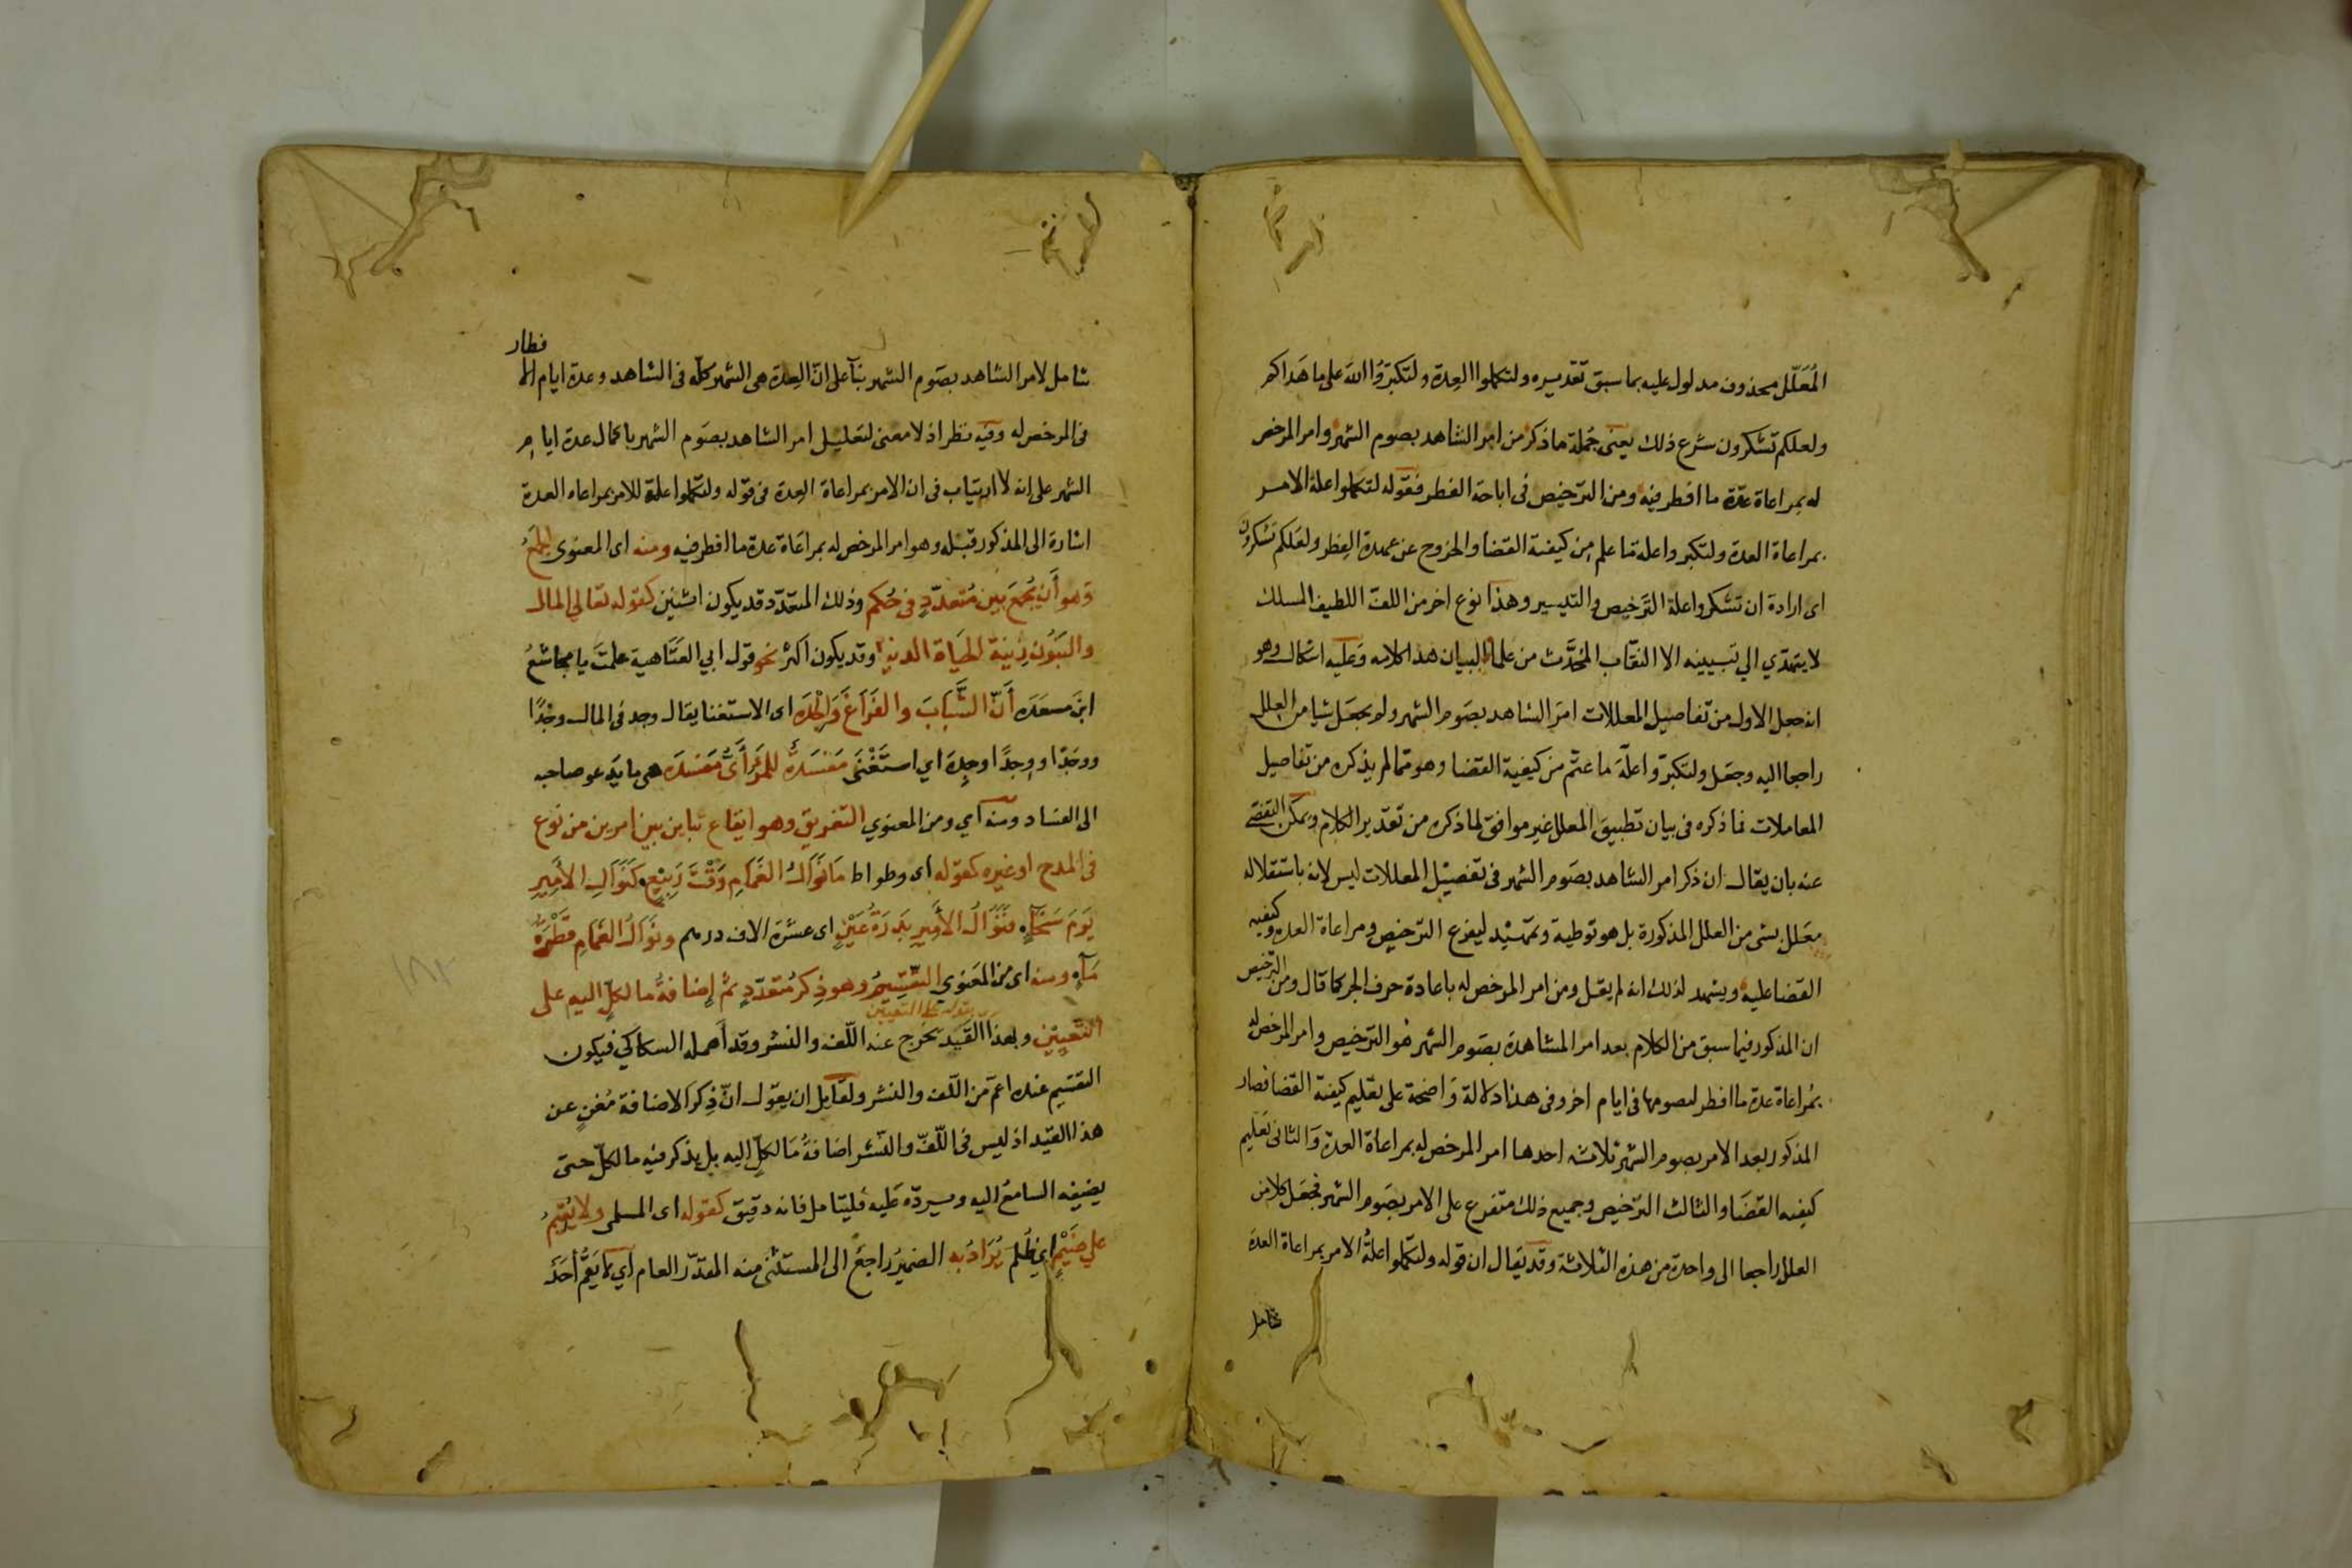 المُعَلّل محذوف مدلول عليه بما سبق تقديره ولتكملوا العِدة ولتكبرُوا الله على ما هَداكم
ولعلكم تشكرون شرع ذلك يعنى جُملة ما ذكر من امر الشاهد بصوم الشهر وامر المرخص
له بمراعاة عدّة ما افطر فيه ومن الترخيص فى اباحة الفطر فقوله لتكملوا علة الامر
بمراعاة العدة ولتكبروا علة ما علم من كيفية القضا والخروج عن عهدة الفِطر ولعَلكم تشكرون
اى ارادة ان تشكروا علة الترَخيص والتيسير وهذا نوع اخر من اللفّ اللطيف المسلك
لا يهتدي الي تبيينه الا النقاب المُحدَّث من علما البيان هذا كلامه وعَليه اشكال وهو
انه جعل الاول من تفاصيل المعللات امرَ الشاهد بصَوم الشهر ولم يجعَل شيا من العِلل
راجعا اليه وجعَل ولتكبرّوا علّة ما علم من كيفية القضا وهو ممّا لم يذكره من تفاصيل
المعاملات فما ذكره فى بيان تطبيق المعلل غير موافق لما ذكره من تقدير الكلام ويمكن التفصّي
عنه بان يقال ان ذكر امر الشاهد بصَوم الشهر فى تفصيْل المعللات ليس لانه باستقلاله
معَلل بشى من العلل المذكورة بل هو توطية وتمهيْد ليفرع الترخيص ومراعاة العدة وكيفيه
القضا عليه ويشهد لذلك انه لم يقل ومن امر المرخص له باعادة حرف الجر كما قال ومن الترخيص
ان المذكور فيما سبق من الكلام بعد امر المشاهدة بصَوم الشهر هو الترخيص وامر المرخص له
بمُراعاة عدة ما افطر لصومها فى ايام اخر وفى هذا دلالة وَاضحة على تعليم كيفية القضا فصار
المذكور بعد الامر بصوم الشهر ثلاثه احدها امر المرخص له بمراعاة العدة وَالثانى تعَليم
كيفيه القضَا والثالث الترَخيص وجميع ذلك متفرع على الامر بصَوم الشهر فجعَل كلا من
العلل راجعا الى واحدة من هذه الثلاثة وقد يقال ان قوله ولتكملوا علةُ الامر بمراعاة العدة
شامل
فطار
شامل لامر الشاهد بصَوم الشهر بنآ على انّ العِدة هى الشهر كله فى الشاهد وعدة ايام الا
فى المرخص له وفيه نظر اذ لا معنى لتعليل امر الشاهد بصَوم الشهر باكمال عدة ايام
الشهر على انه لا ارتياب فى ان الامر بمراعاة العِدة فى قوله ولتكملوا علة للامر بمراعاه العدة
اشارة الى المذكور قبله وهو امر المرخص له بمراعَاة عدة ما افطر فيه ومنه اى المعنوى الجَمعُ
وهو أن يُجمَع بين مُتعدّدٍ فى حُكم وذلك المتعَدّد قد يكون اثنين كقوله تعَالي المال
والبَنُون زينَة الحَيَاة الدنيا وقد يكون اكثر نحو قول ابي العَتَاهية علمتَ يا مجاشعُ
ابنَ مسعَده أَنَّ الشَّبَابَ والفَرَاغَ وَالجْدَه اى الاستغنا يقال وجد فى المال وجْدًا
ووجَدا ووِجدًا وجِدة اي استَغْنَى مَفسَدةٌ للمَرْءِ أَىُّ مَفسَدَه هى ما يَدعو صاحبه
الى الفسَاد ومنه اي ومن المعنوي التفريق وهو ايقاع تباين بين امرين من نوع
فى المدح او غيره كقوله اى وطواط مَا نَوَالُ الغَمَامِ وَقْتَ رَبيْعٍ كَنَوَالِ الأَمِيرِ
يَوَمَ سَخَآءٍ فنَوَالُ الأَمِيرِ بَدرَةُ عَيْنٍ اى عشرَة الاف درهم ونَوَالُ الغَمامِ قَطْرةُ
مَآءٍ ومنه اى من المَعنوى التّقْسِيمُ وهو ذِكرُ مُتعَدّدٍ ثمّ إضافةُ ما لكلٍّ اليه على
بقوله على التعيين
التَّعيِيْنِ وبهَذا القَيد يَخرج عنه اللّف والنشر وقد أهمله السكاكي فيكون
التقسَيم عنده اعمّ من اللّف والنشر ولقايل ان يقول انّ ذِكرَ الاضافة مُغنٍ عن
هذا القيد اذ ليس فى اللّفّ والنّشر اضَافةُ مَا لكلٍّ اليه بل يذكر فيه ما لكلّ حتى
يضيفه السامعُ اليه ويردّه عَليه فليتامل فانه دقيق كقوله اى المتلمس ولا يُقيْمُ
علي ضَيْمٍ اي ظُلم يُرَادُ به الضميرُ راجعٌ الى المستثنى منه المقدّر العام اي لا يَقيم أحَدٌ